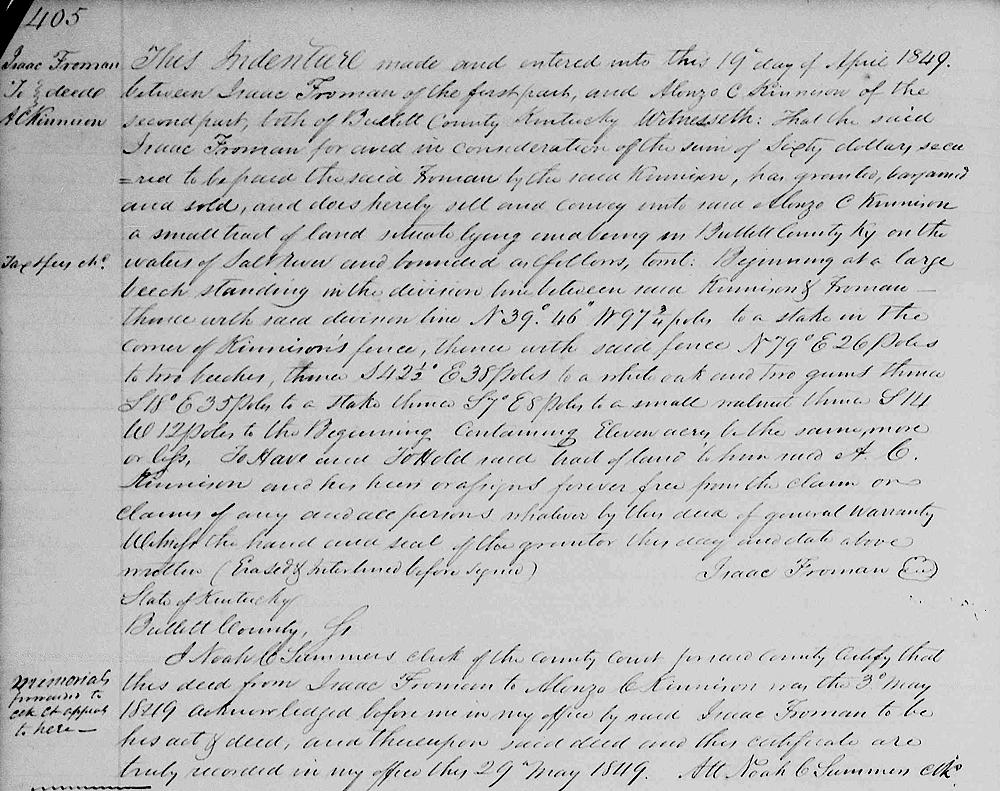 405
Isaac Froman
To } deed
A C Kinnison
This Indenture made and entered into this 19th day of April 1849.
between Isaac Froman of the first part, and Alonzo C Kinnison of the
second part, both of Bullitt County Kentucky Witnesseth: That the said
Isaac Froman for and in consideration of the sum of Sixty dollars secu
=red to be paid the said Froman by the said Kinnison, has granted, bargained
and sold, and does hereby sell and convey unto said Alonzo C Kinnison
a small tract of land situate lying and being in Bullitt County Ky on the
Tax &
waters of Salt River and bounded as follows, towit: Beginning at a large
beech standing in the division line between said Kinnison & Froman —
thence with said division line N 39° 46" W 97 3/4 poles to a stake in the
corner of Kinnison's fence, thence with said fence N 79° E 26 poles
to two beeches, thence S 42 1/2° E 38 poles to a white oak and two gums thence
S 18° E 35 poles to a stake thence S 7° E 8 poles to a small walnut thence S 14
W 12 poles to the Beginning Containing Eleven acres, be the same, more
or less, To Have and To Hold said tract of land to him said A. C.
Kinnison and his heirs or assigns forever free from the claim or
claims of any and all persons whatever by this deed of general warranty
Witness the hand and seal of the grantor this day and date above
written (Erased & Interlined before signed) Isaac Froman
State of Kentucky
Bullitt County, Sct
I Noah C Summers clerk of the county court for said county certify that
this deed from Isaac Froman to Alonzo C Kinnison was the 3d May
1849 acknowledged before me in my office by said Isaac Froman to be
his act & deed, and thereupon said deed and this certificate are
truly recorded in my office this 29th May 1849. Att Noah C Summers clk
Memorials
forwarded to
clk Ct appeals
to here —